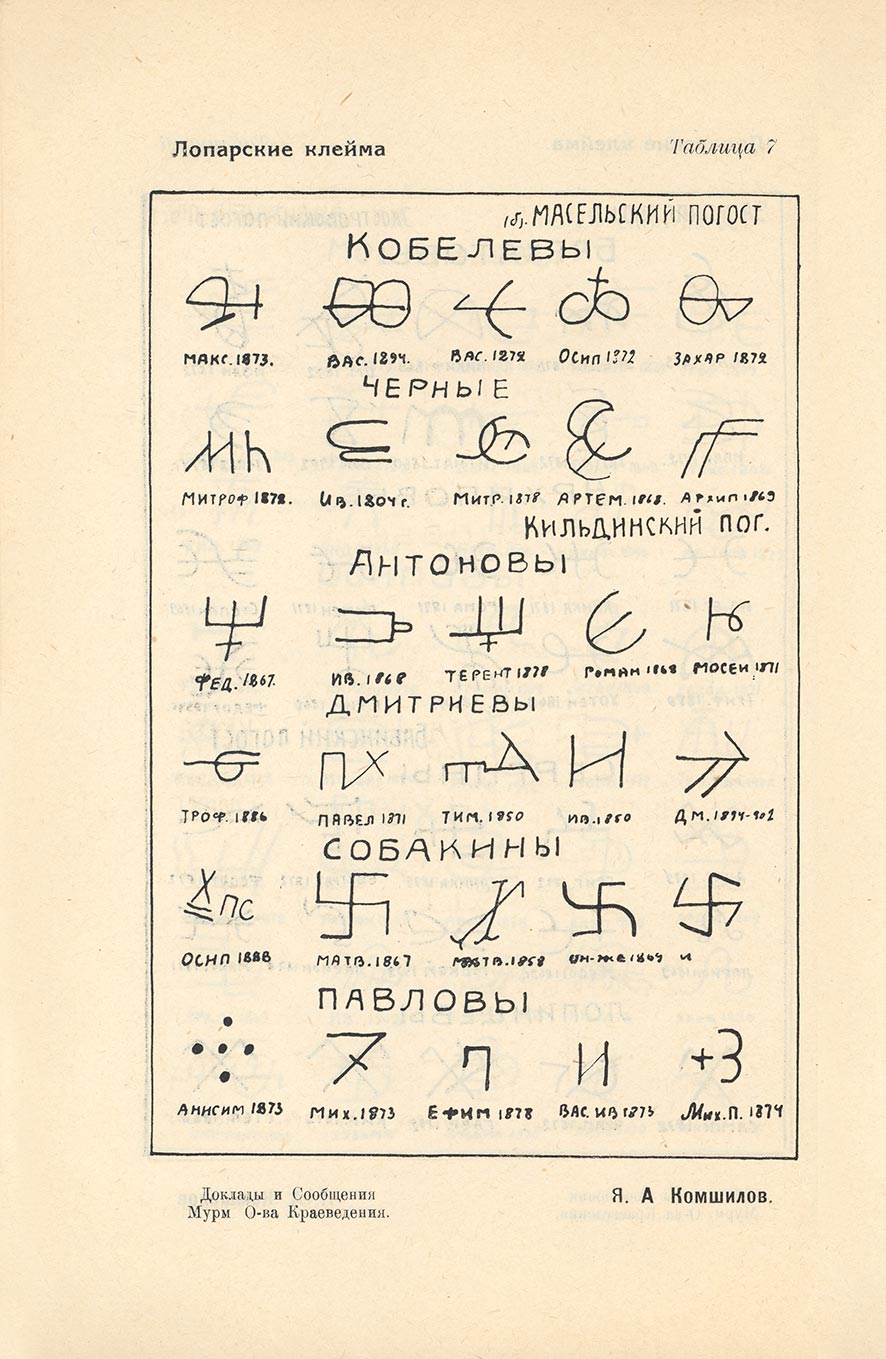 Лопарские клейма Таблица 7
(б). МАСЕЛЬСКИЙ ПОГОСТ
КОБЕЛЕВЫ
МАКС. 1873. ВАС. 1894. ВАС. 1872 ОСИП 1872 ЗАХАР 1872
ЧЕРНЫЕ
МИТРОФ 1878. ИВ. 1804 г. МИТР. 1878 АРТЕМ. 1868. АРХИП 1869
КИЛЬДИНСКИЙ ПОГ.
АНТОНОВЫ
ФЕД. 1867. ИВ. 1868 ТЕРЕНТ 1878 РОМАН 1868 МОСЕИ 1871
ДМИТРИЕВЫ
ТРОФ. 1886 ПАВЕЛ 1871 ТИМ. 1850 ИВ. 1850 ДМ. 1894-902
СОБАКИНЫ
ПС
ОСИП 1888 МАТВ. 1867 МАТВ. 1858 ОН-ЖЕ 1869 и
ПАВЛОВЫ
АНИСИМ 1873 МИХ. 1873 ЕФИМ 1878 ВАС. ИВ 1873 Мих. П. 1874
Доклады и Сообщения
Мурм О-ва Краеведения.
Я. А Комшилов.